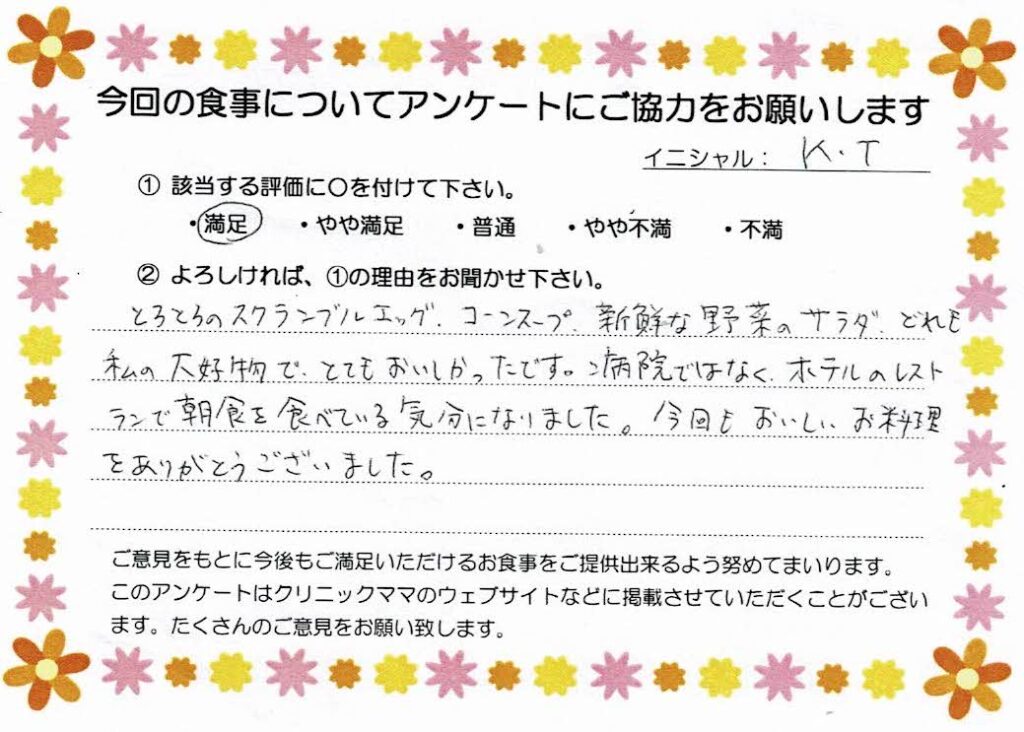 今回の食事についてアンケートにご協力をお願いします
イニシャル： K.T
① 該当する評価に○を付けて下さい。
・満足 ・やや満足 ・普通 ・やや不満 ・不満
② よろしければ、①の理由をお聞かせ下さい。
とろとろのスクランブルエッグ、コーンスープ、新鮮な野菜のサラダ、どれも
私の大好物で、とてもおいしかったです。病院ではなく、ホテルのレスト
ランで朝食を食べている気分になりました。今回もおいしいお料理
をありがとうございました。
ご意見をもとに今後もご満足いただけるお食事をご提供出来るよう努めてまいります。
このアンケートはクリニックママのウェブサイトなどに掲載させていただくことがござい
ます。たくさんのご意見をお願い致します。